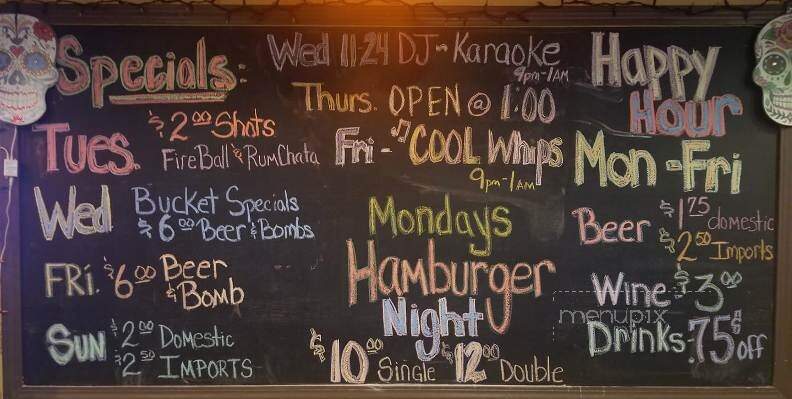 Specials:
Tues. $2.00 Shots
FireBall & RumChata
Wed Bucket Specials
$6.00 Beer & Bombs
FRi. $6.00 Beer
& Bomb
Sun $2.00 Domestic
$2.50 Imports
Wed 11-24 DJ - Karaoke
9pm-1AM
Thurs. OPEN @ 1:00
Fri - COOL Whips
9pm-1AM
Mondays
Hamburger
Night
$10.00 Single $12.00 Double
Happy
Hour
Mon-Fri
Beer $1.75 domestic
$2.50 Imports
Wine $3.00
menupix
Drinks .75¢ off